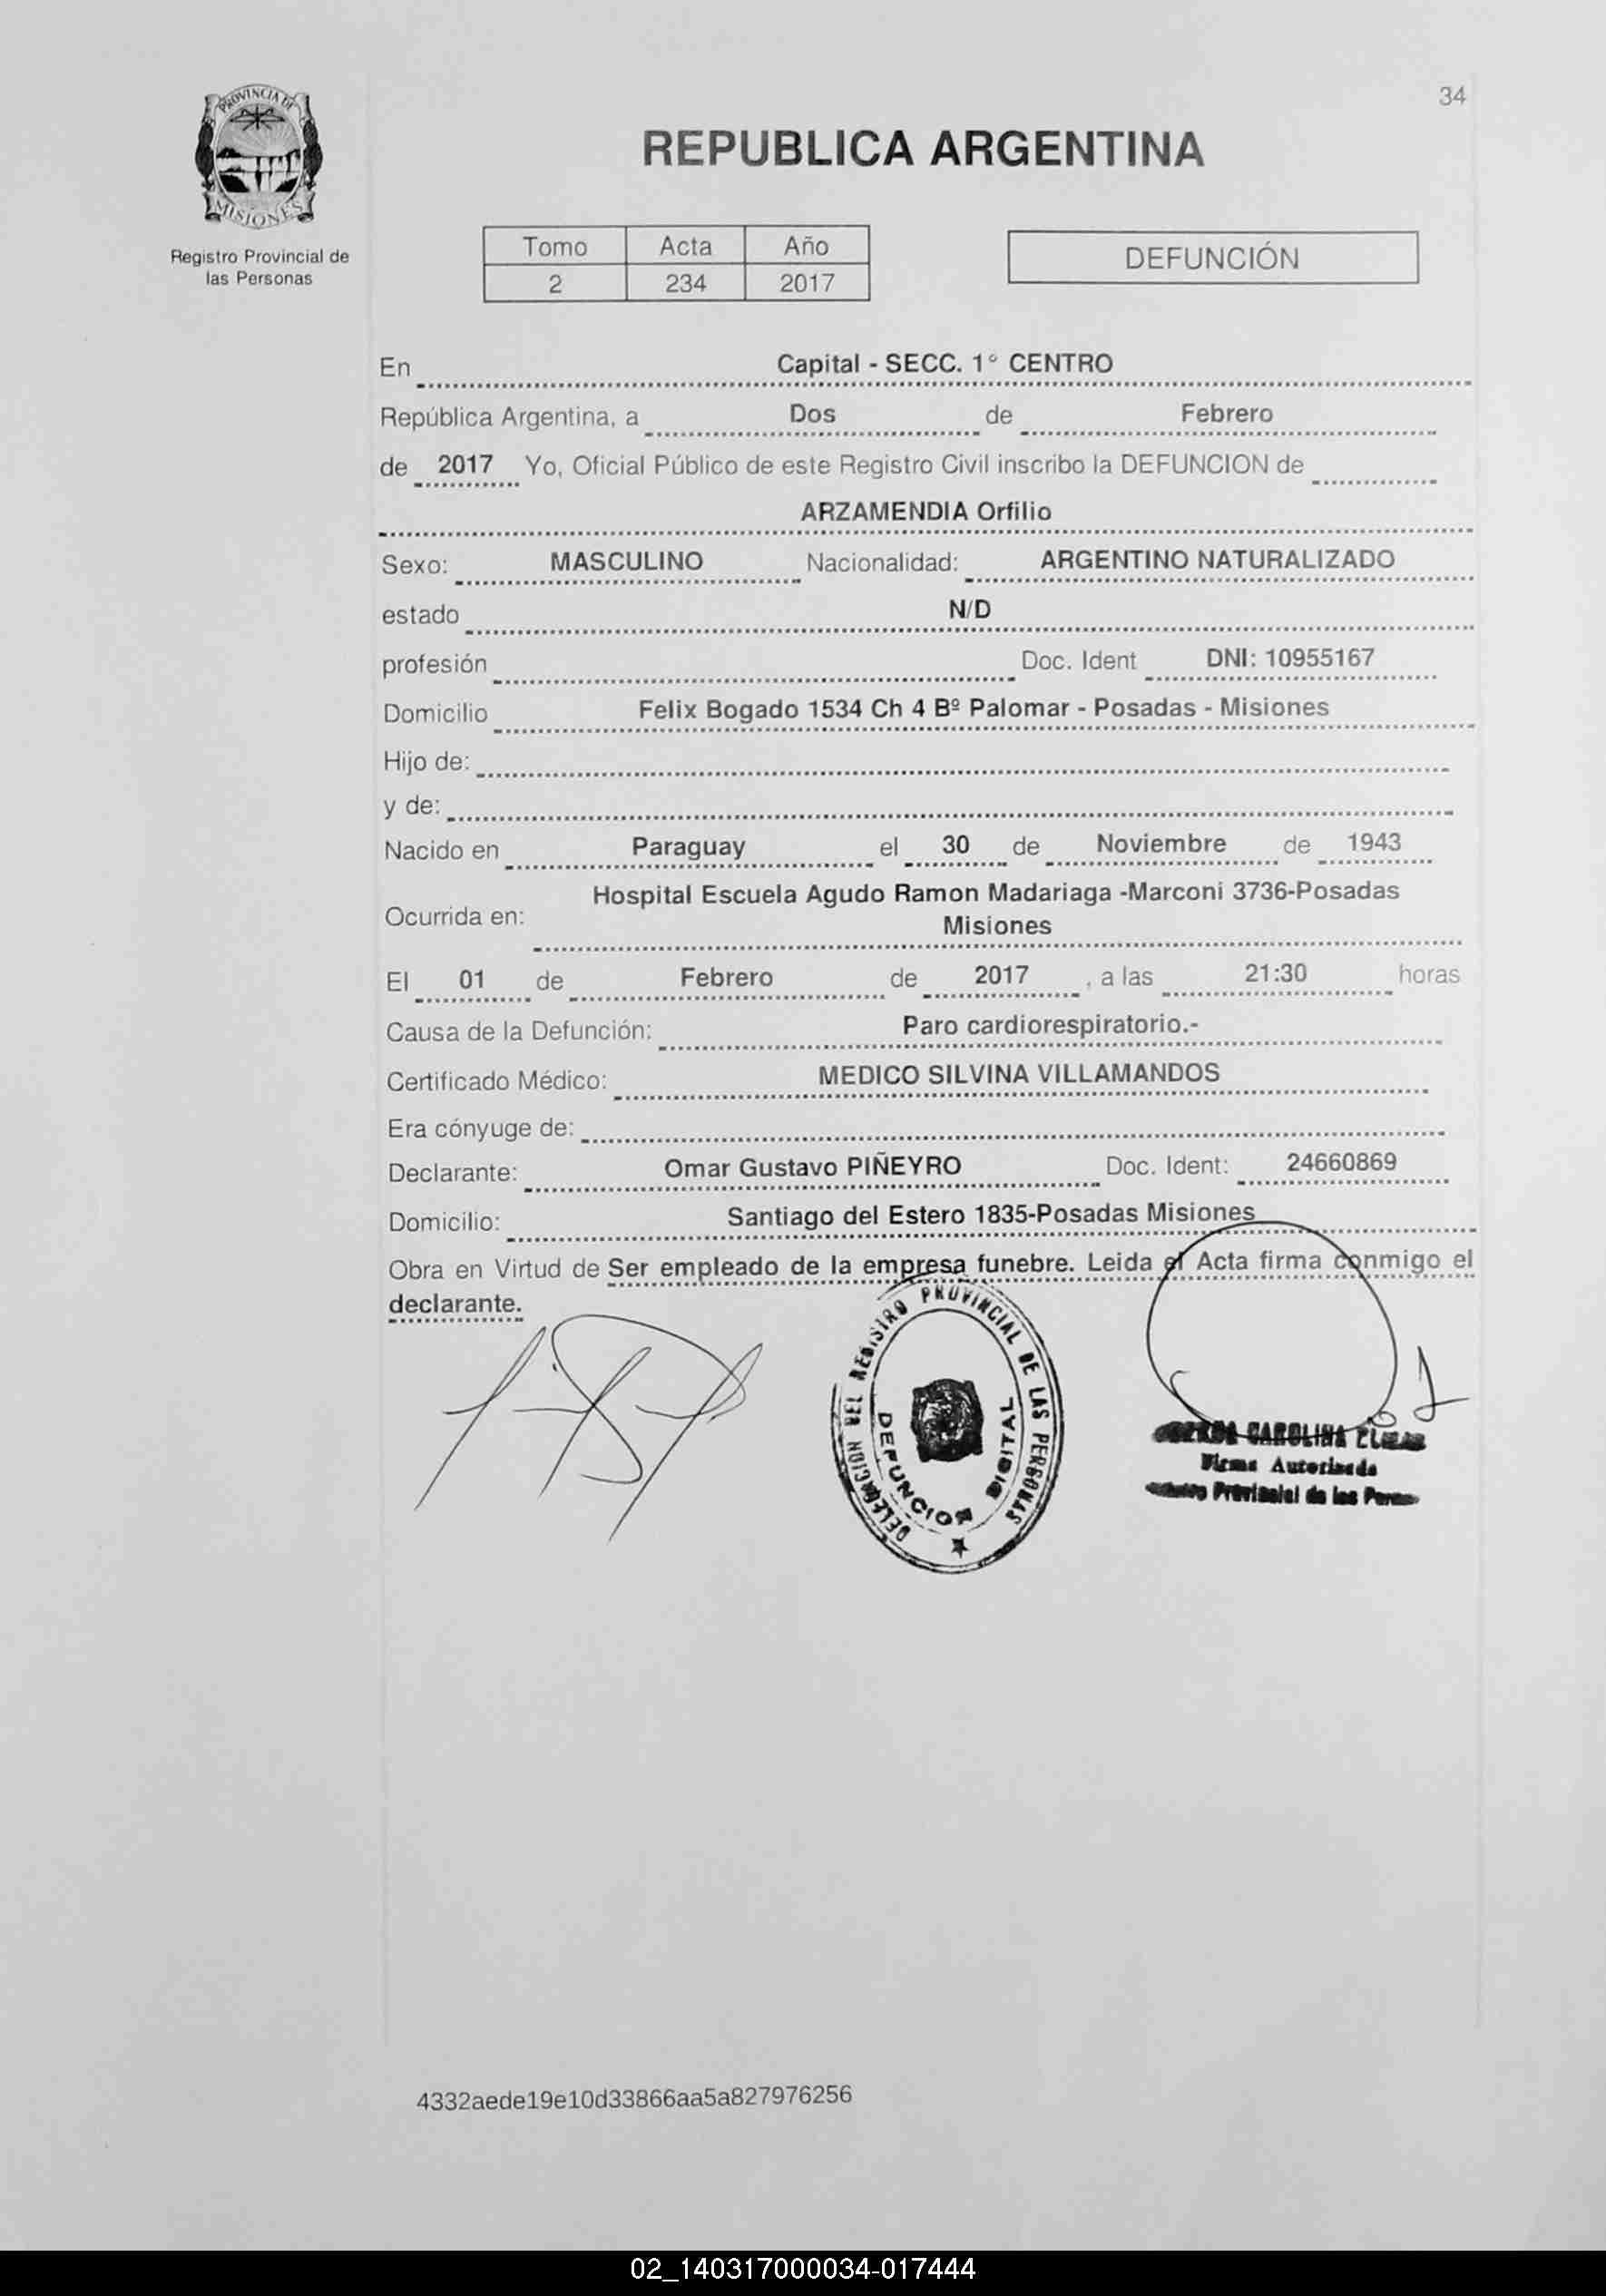 34
PROVINCIA DE
MISIONES
Registro Provincial de
las Personas
REPUBLICA ARGENTINA
Tomo Acta Año
2 234 2017
DEFUNCIÓN
En Capital - SECC. 1° CENTRO
República Argentina, a Dos de Febrero
de 2017 Yo, Oficial Público de este Registro Civil inscribo la DEFUNCION de
ARZAMENDIA Orfilio
Sexo: MASCULINO Nacionalidad: ARGENTINO NATURALIZADO
estado N/D
profesión Doc. Ident DNI: 10955167
Domicilio Felix Bogado 1534 Ch 4 Bº Palomar - Posadas - Misiones
Hijo de:
y de:
Nacido en Paraguay el 30 de Noviembre de 1943
Hospital Escuela Agudo Ramon Madariaga -Marconi 3736-Posadas
Ocurrida en: Misiones
El 01 de Febrero de 2017 , a las 21:30 horas
Causa de la Defunción: Paro cardiorespiratorio.-
Certificado Médico: MEDICO SILVINA VILLAMANDOS
Era cónyuge de:
Declarante: Omar Gustavo PIÑEYRO Doc. Ident: 24660869
Domicilio: Santiago del Estero 1835-Posadas Misiones
Obra en Virtud de Ser empleado de la empresa funebre. Leida el Acta firma conmigo el
declarante.
DELEGACION DEL REGISTRO PROVINCIAL DE LAS PERSONAS
DEFUNCION DIGITAL
CAROLINA
Firma Autorizada
Provincial de las
4332aede19e10d33866aa5a827976256
02_140317000034-017444